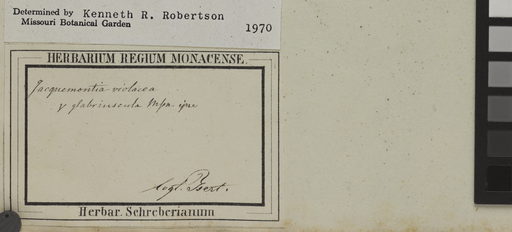 Determined by Kenneth R. Robertson
Missouri Botanical Garden
1970
HERBARIUM REGIUM MONACENSE.
Jacquemontia violacea
γ glabriuscula Msn. ipse
legt. Isert.
Herbar. Schreberianum